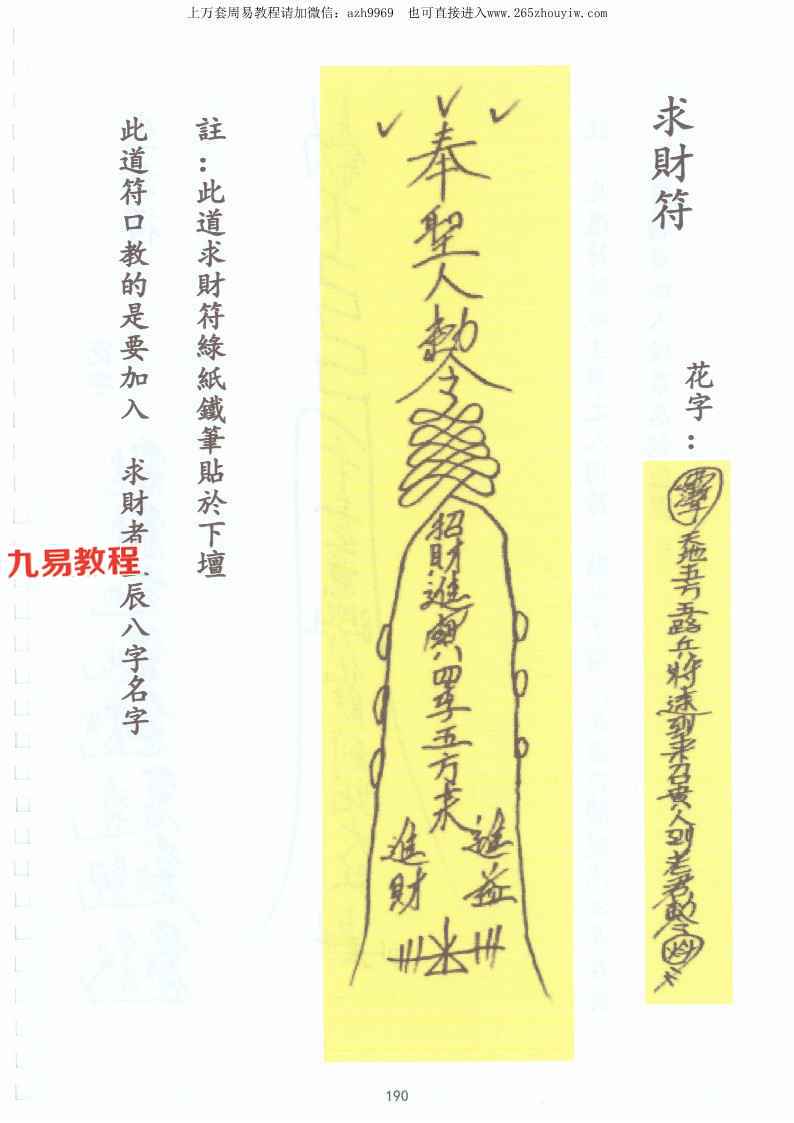 上万套周易教程请加微信：azh9969 也可直接进入www.265zhouyiw.com
求財符
花字：
天地五方五路兵將速到来召貴人到老君敕令
奉聖人勅令
招財進寶八四季五方来
進益
進財
註：此道求財符綠紙鐵筆貼於下壇
此道符口教的是要加入 求財者 辰八字名字
九易教程
190